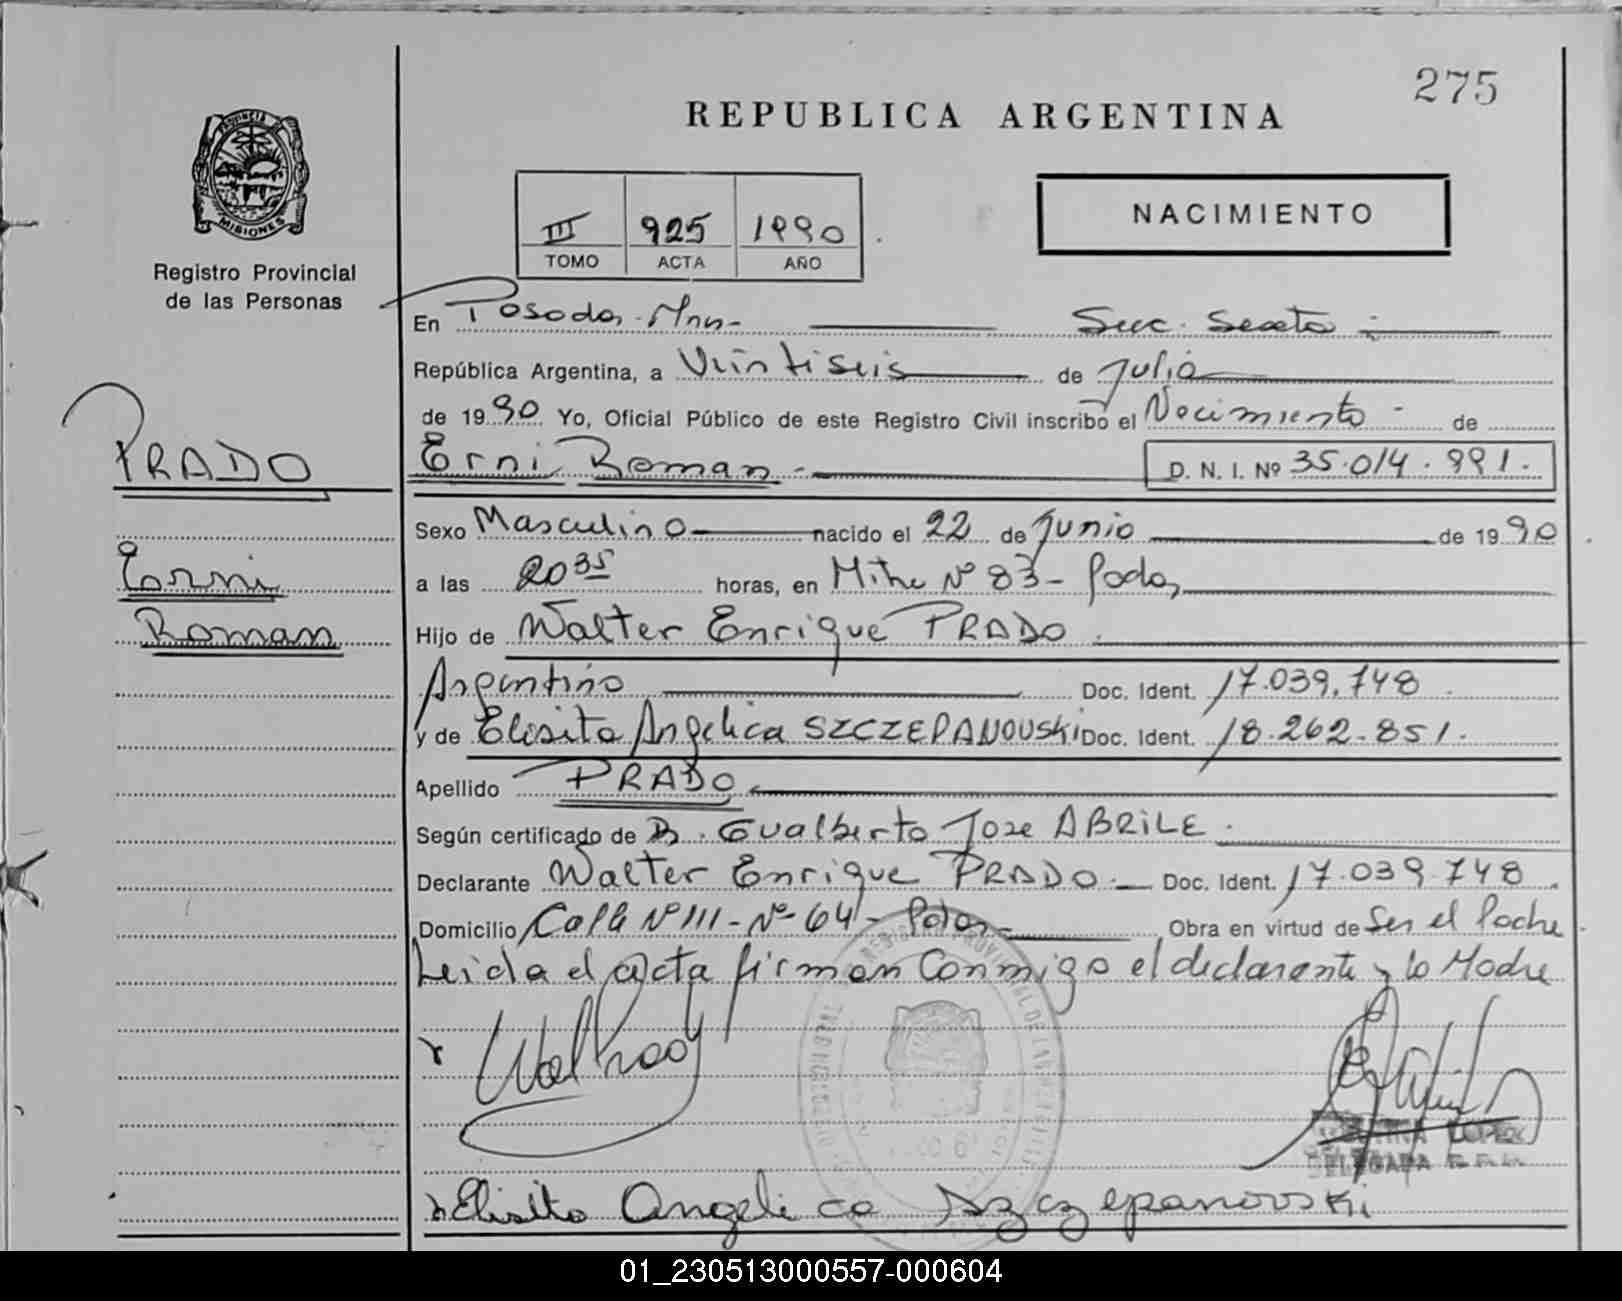 275
REPUBLICA ARGENTINA
PROVINCIA DE
MISIONES
Registro Provincial
de las Personas
III 925 1990
TOMO ACTA AÑO
NACIMIENTO
En Posadas - Mnes- Suc. Sexta
República Argentina, a Veintiseis de Julio
de 1990 Yo, Oficial Público de este Registro Civil inscribo el Nacimiento - de
Erni Roman - D. N. I. Nº 35.014.991.
PRADO
Erni
Roman
Sexo Masculino nacido el 22 de Junio de 1990
a las 20 35 horas, en Mitre Nº 83 - Pdas
Hijo de Walter Enrique PRADO
Argentino Doc. Ident. 17.039.748
y de Elisita Angelica SZCZEPANOUSKI Doc. Ident. 18.262.851.
Apellido PRADO
Según certificado de Dr. Gualberto Jose ABRILE.
Declarante Walter Enrique PRADO - Doc. Ident. 17.039.748
Domicilio Calle Nº 111 - Nº 64 - Pdas - Obra en virtud de Ser el Padre
Leida el acta firman conmigo el declarante y la Madre
LOPEZ
DELEGADA
Elisita Angelica Szczepanovski
01_230513000557-000604